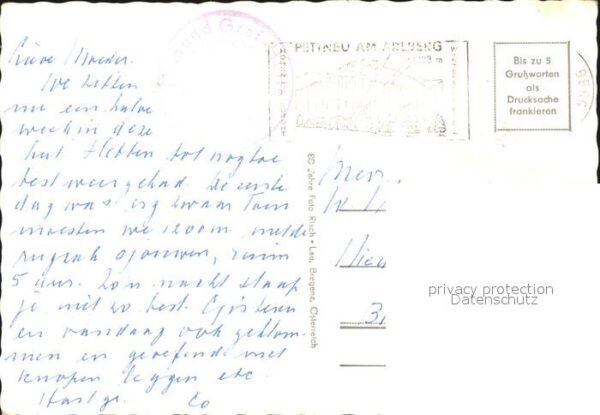 Lieve Moeder.
We zitten
nu een halve
week in deze
hut. Hebben tot nog toe
best weer gehad. De eerste
dag was erg zwaar. Toen
moesten we 1200m. met de
rugzak sjouwen, ruim
5 uur. Zo'n nacht slaap
je niet zo best. Gisteren
en vandaag ook geklom-
men en geoefend met
knopen leggen etc.
Hart. gr. Co
PETTNEU AM ARLBERG
Bis zu 5
Grußworten
als
Drucksache
frankieren
80 Jahre Foto Risch-Lau, Bregenz, Österreich
Mev.
privacy protection
Datenschutz